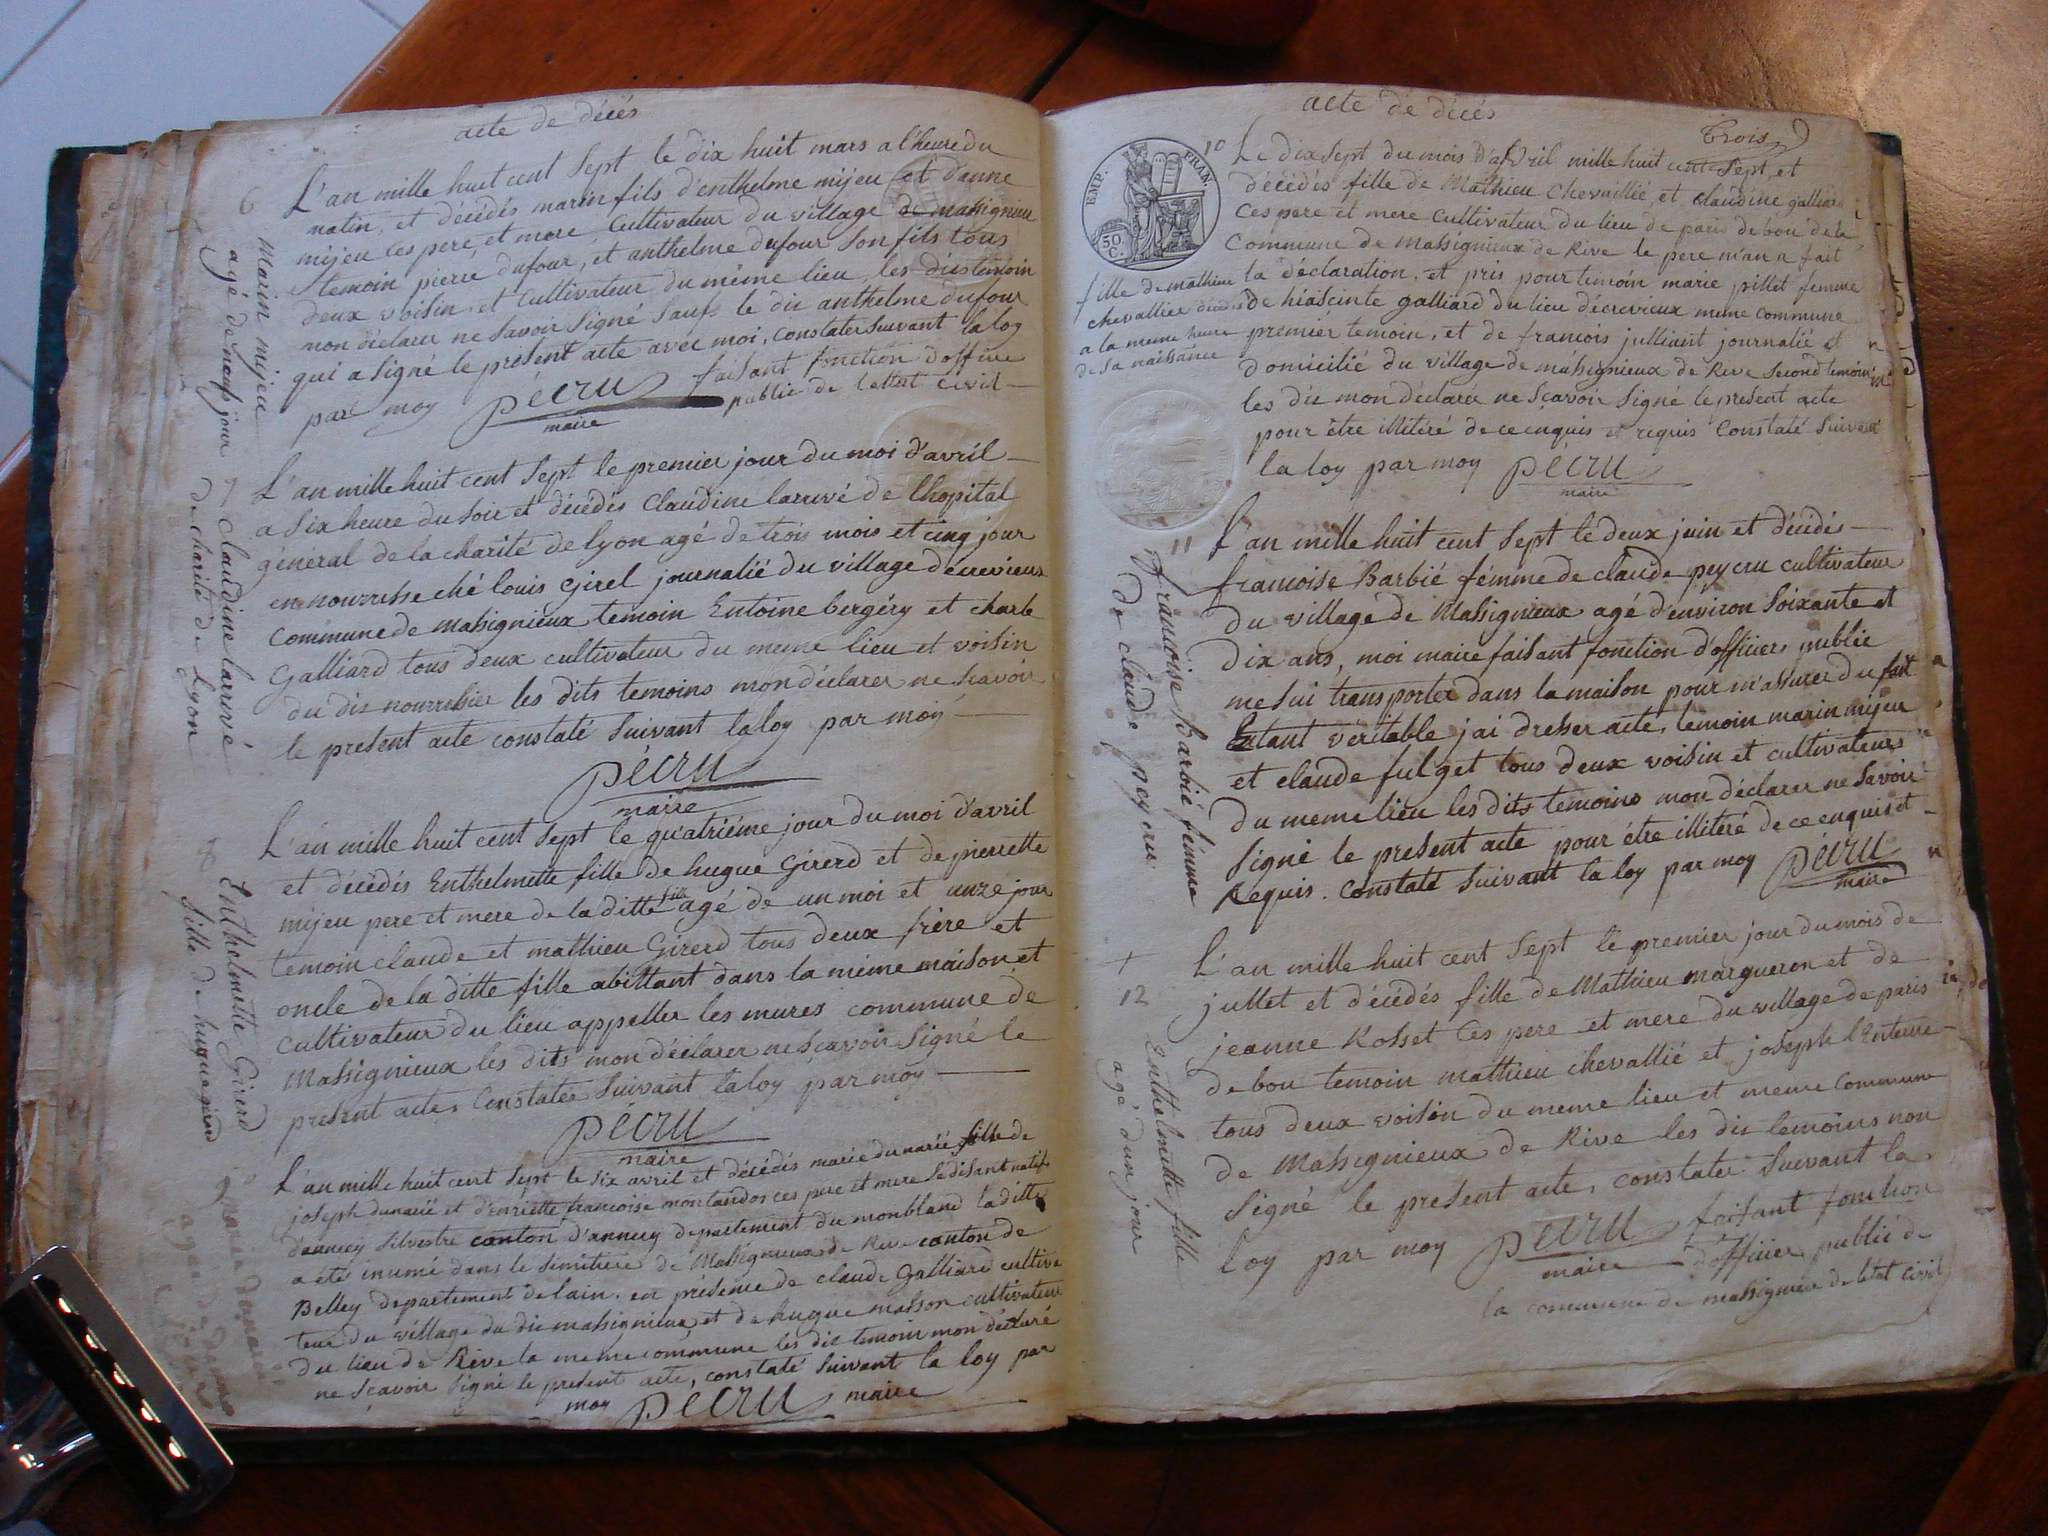 acte de décés
6
Marin mijeu
agé de neuf jour
L'an mille huit cent Sept le dix huit mars a l'heure du
matin, et décédés marin fils d'enthelme mijeu et d'anne
mijeu ces pere et mere Cultivateur du village de massignieu
temoin pierre dufour, et anthelme dufour Son fils tous
deux voisin et Cultivateur du même lieu, les dis temoin
mon déclarer ne Savoir Signé Saufs le dit anthelme dufour
qui a Signé le présent acte avec moi, Constater Suivant la loy
par moy pécru faisant fonction d'office
maire public de lettat Civil
7 Claudine larrivé
de charité de Lyon
L'an mille huit cent Sept le premier jour du moi d'avril
a Six heure du Soir et décédés Claudine larrivé de l'hopital
géneral de la charité de lyon agé de trois mois et cinq jour
en nourrisse ché louis Girel journalié du village d'écrevieux
Commune de massignieux temoin Entoine bergéry et charle
Galliard tous deux cultivateur du meme lieu et voisin
du dis nourrissier les dits temoins mon déclarer ne Scavoir
le present acte constaté Suivant la loy par moy
pécru
maire
8
Enthelmette Girerd
fille de hugue girerd
L'an mille huit cent Sept le quatriéme jour du moi d'avril
et décédés Enthelmette fille de hugue Girerd et de pierrette
mijeu pere et mere de la ditte fille agé de un moi et unze jour
temoin claude et mathieu Girerd tous deux frére et
oncle de la ditte fille abittant dans la méme maison et
cultivateur du lieu appeller les mures commune de
Massignieux les dits mon déclarer ne Scavoir Signé le
présent acte, Constatée Suivant la loy par moy
pécru
maire
L'an mille huit cent Sept le Six avril et décédés marie dunarié fille de
joseph dunarié et d'enriette francoise montandos ces pere et mere Sedisant natif
d'annecy Silvestre canton d'annecy departement du monbland la ditte
a été inumé dans le Simitiere de Massignieux de Rive canton de
Belley departement de lain, en présence de claude Galliard cultiva
teur du village du dis massignieux, et de hugue masson cultivateur
du lieu de Rive la meme commune les dis temoin mon déclaré
ne Scavoir Signé le présent acte, constaté Suivant la loy par
moy pécru maire
acte de décés
Trois
EMP. FRAN.
50
C.
10
fille de mathieu
chevallier décédés
a la meme heure
de Sa naissance
Le dix Sept du mois d'avril mille huit cent Sept, et
décédés fille de Mathieu Chevallié, et claudine galliard
Ces pere et mere Cultivateur du lieu de paris de bou de la
Commune de Massignieux de Rive le pere m'an a fait
la déclaration, et pris pour temoin marie pillet femme
de hiascinte galliard du lieu d'écrevieux meme commune
premiér temoin, et de francois julliant journalié et
domicilié du village de massignieux de Rive Second temoin
les dis mon déclaré ne Scavoir Signé le présent acte
pour être illitéré de ce enquis et requis Constaté Suivant
la loy par moy pécru
maire
11 francoise barbié fémme
de claude peycru
L'an mille huit cent Sept le deux juin et décédés
francoise Barbié fémme de claude peycru cultivateur
du village de Massignieux agé d'environ Soixante et
Dix ans, moi maire faisant fonction d'officier public
me Sui transporter dans la maison pour m'assurer du fait
Etant véritable j'ai dresser acte, temoin marin mijeu
et claude fulget tous deux voisin et cultivateurs
du meme lieu les dits temoins mon déclarer ne Savoir
Signé le présent acte pour étre illitéré de ce enquis et
Requis. Constaté Suivant la loy par moy pécru
maire
12 Enthelmette fille
agé d'un jour
L'an mille huit cent Sept le premier jour du mois de
jullet et décédés fille de Mathieu margueron et de
jeanne Rosset Ces pere et mere du village de paris
de bou temoin mathieu chevallié et joseph l'Enterne
tous deux voisin du meme lieu et meme Commune
de Massignieux de Rive les dis temoins non
Signé le présent acte, constater Suivant la
loy par moy pécru faisant fonction
maire d'officier public de
la commune de massignieu de letat Civil